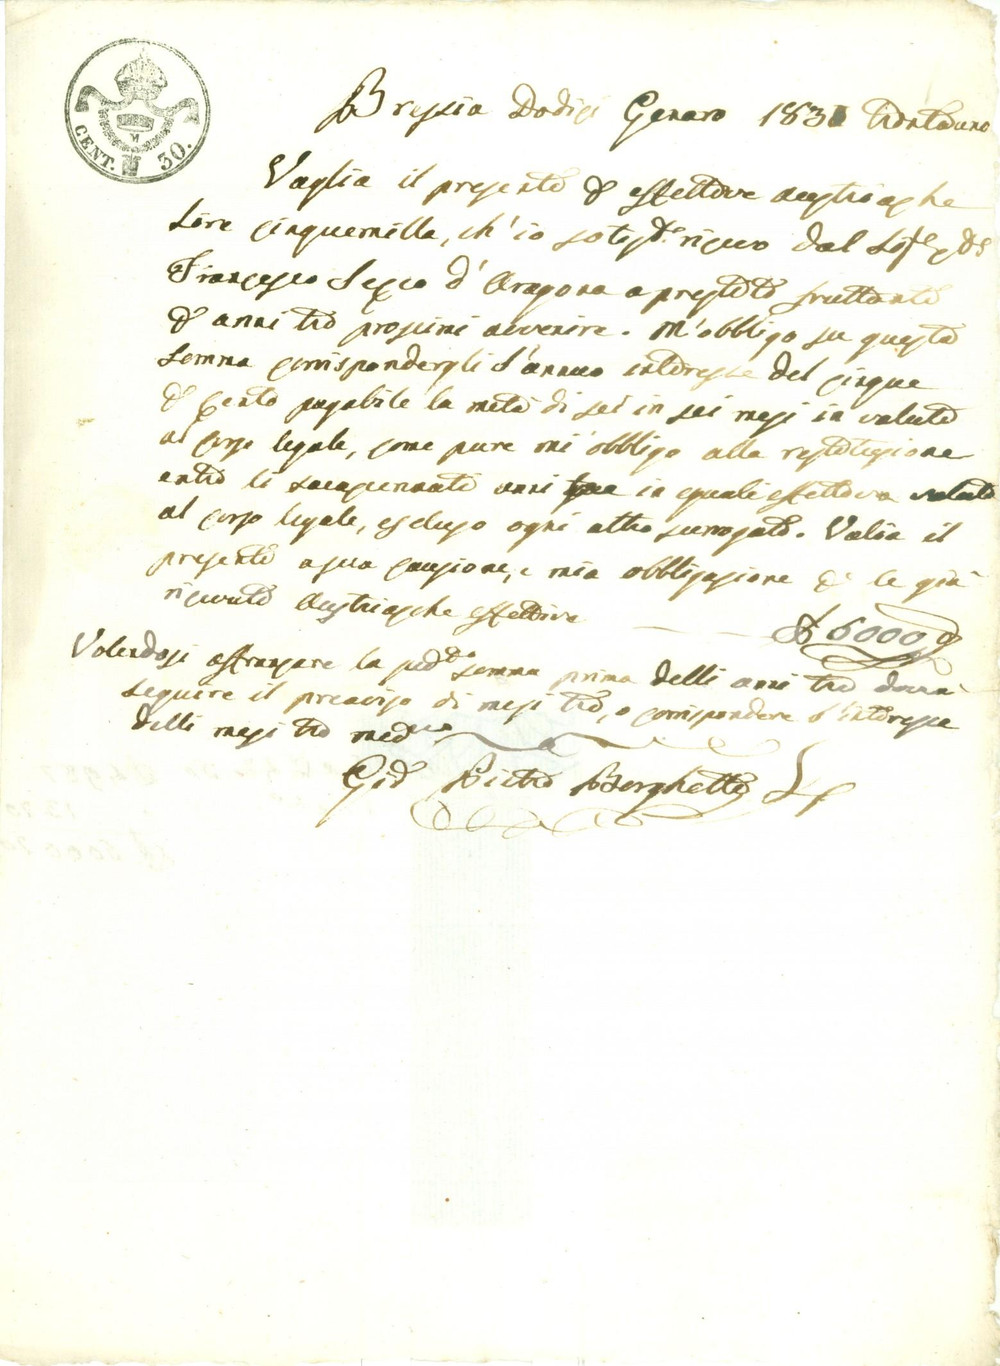 CENT. 30.
M
Brescia Dodici Genaro 1831 trentauno
Vaglia il presente per effettive austriache
Lire cinquemilla, ch'io sotto ricevo dal
Francesco Secco d'Aragona a prestito fruttante
per anni tre prossimi avvenire. M'obbligo su questa
somma corrispondergli l'annuo interesse del cinque
per cento pagabile la metà di sei in sei mesi in valuta
al corso legale, come pure mi obbligo alla restituzione
entro li sucacennati anni tre in equali effettiva valuta
al corso legale, escluso ogni altro surrogato. Valia il
presente a sua cauzione, e mia obbligazione per le già
ricevute Austriache effettive
Volendosi affrancare la somma prima delli anni tre dovrà
seguire il preaviso di mesi tre, o corrispondere l'interesse
delli mesi tre
Gio Pietro Borghetti